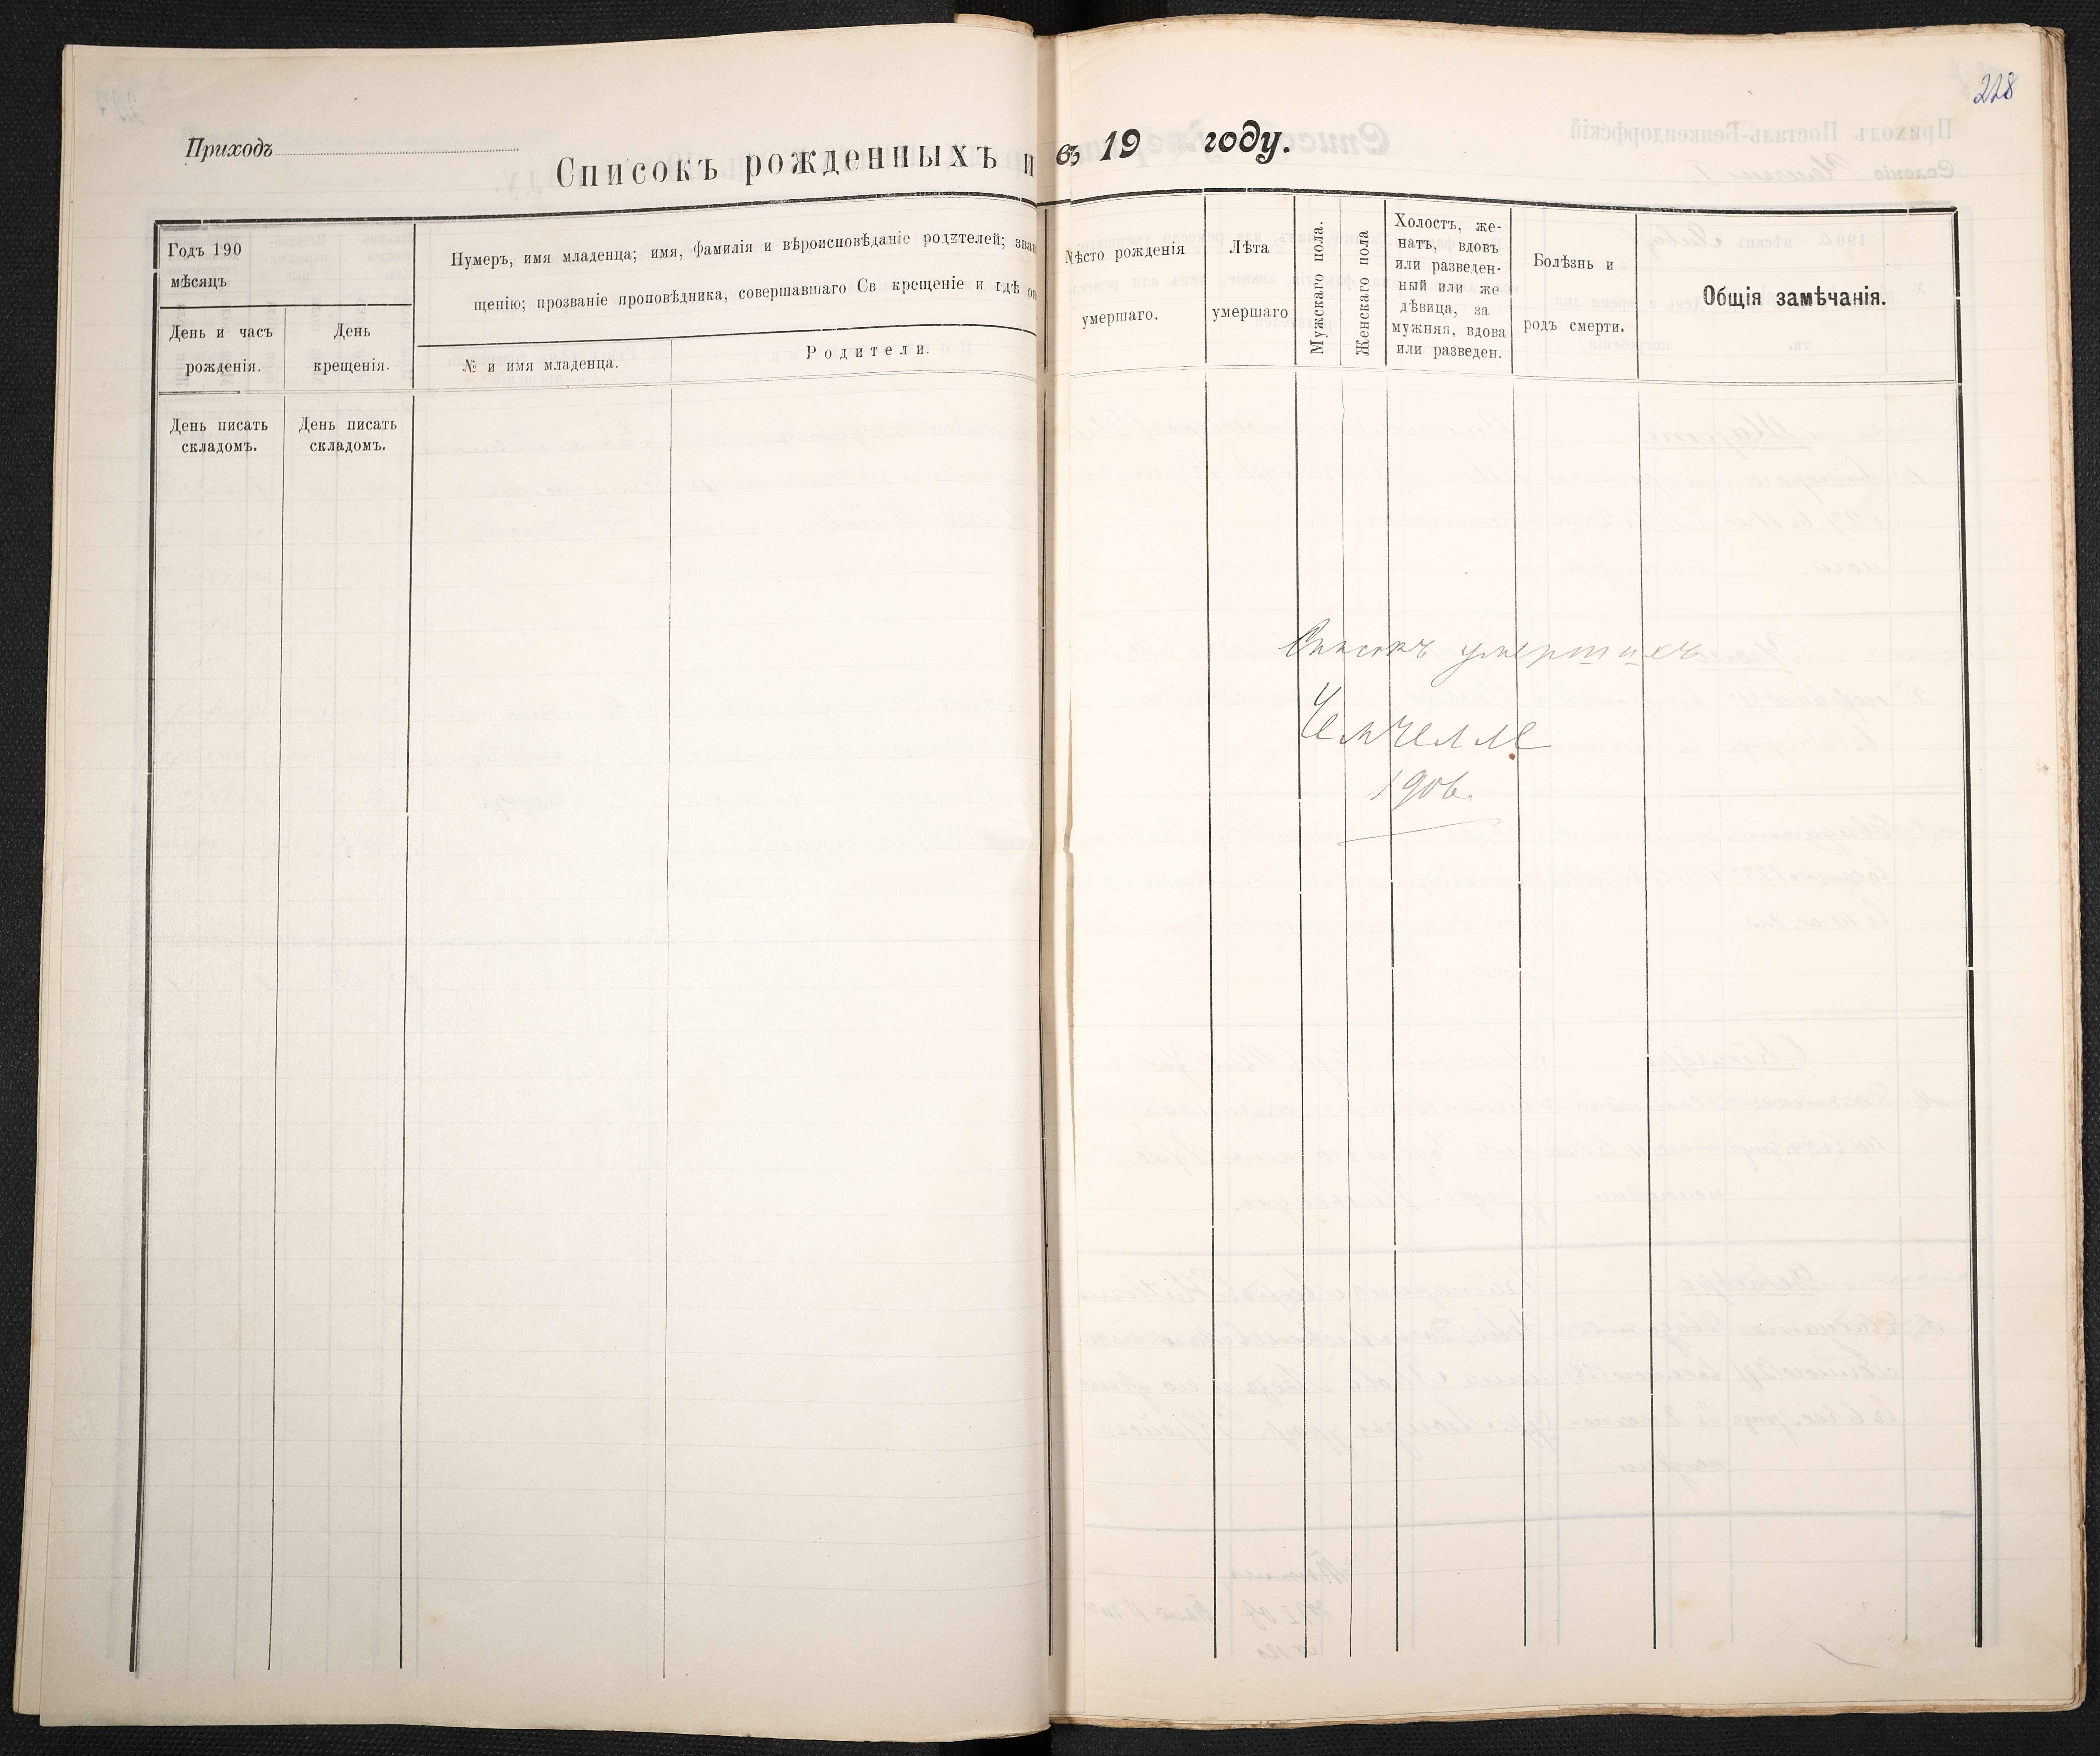 Приходъ
Списокъ рожденныхъ и
Годъ 190
мѣсяцъ
День и часъ
рожденія.
День
крещенія.
Нумеръ, имя младенца; имя, фамилія и вѣроисповѣданіе родителей; зва
щенію; прозваніе проповѣдника, совершавшаго Св крещеніе и гдѣ он
№ и имя младенца.
Родители.
День писать
складомъ.
День писать
складомъ.
228
въ 19 году.
Мѣсто рожденія
умершаго.
Лѣта
умершаго
Мужскаго пола.
Женскаго пола
Холостъ, же-
натъ, вдовъ
или разведен-
ный или же
дѣвица, за
мужняя, вдова
или разведен.
Болѣзнь и
родъ смерти.
Общія замѣчанія.
Списокъ умершихъ
Чемчелле
1906.